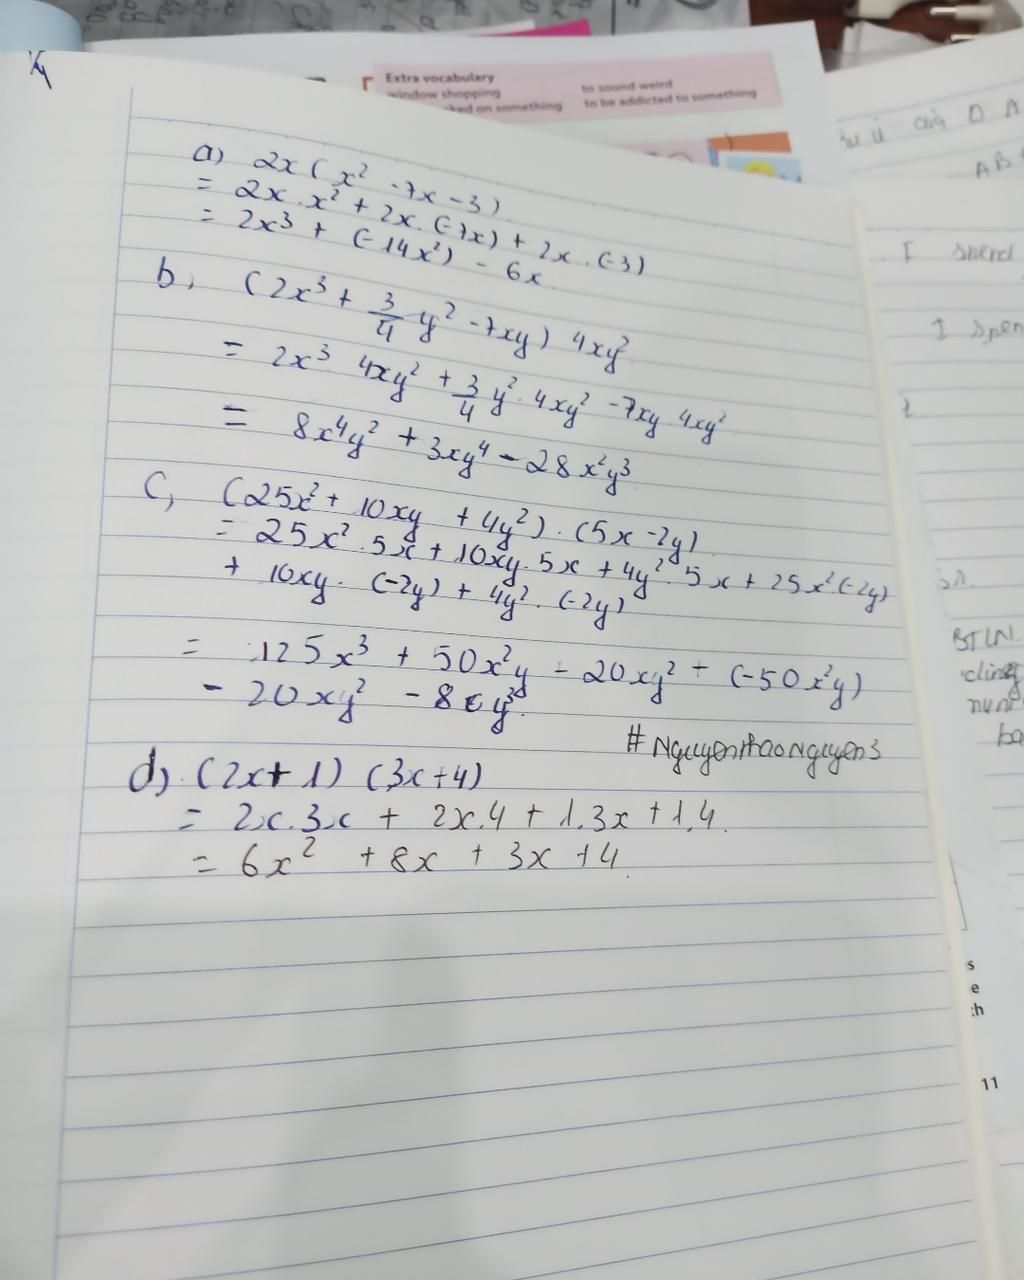 Extra vocabulary
window shopping
ked on something
to sound weird
to be addicted to something
a) 2x ( x² - 7x - 3)
= 2x . x² + 2x. (-7x) + 2x . (-3)
= 2x³ + (-14x²) - 6x
b, (2x³ + 3/4 y² - 7xy) 4xy²
= 2x³ 4xy² + 3/4 y². 4xy² - 7xy. 4xy²
= 8x⁴y² + 3xy⁴ - 28x²y³
C, (25x² + 10xy + 4y²) . (5x - 2y)
= 25x² . 5x + 10xy. 5x + 4y² . 5x + 25x² (-2y)
+ 10xy . (-2y) + 4y² . (-2y)
= 125x³ + 50x²y - 20xy² + (-50x²y)
- 20xy² - 8 y³.
# NguyenthaoNguyen3
d, (2x + 1) (3x + 4)
= 2x.3x + 2x.4 + 1.3x + 1.4.
= 6x² + 8x + 3x + 4.
I spend
I spen
BTLN.
s
e
:h
11